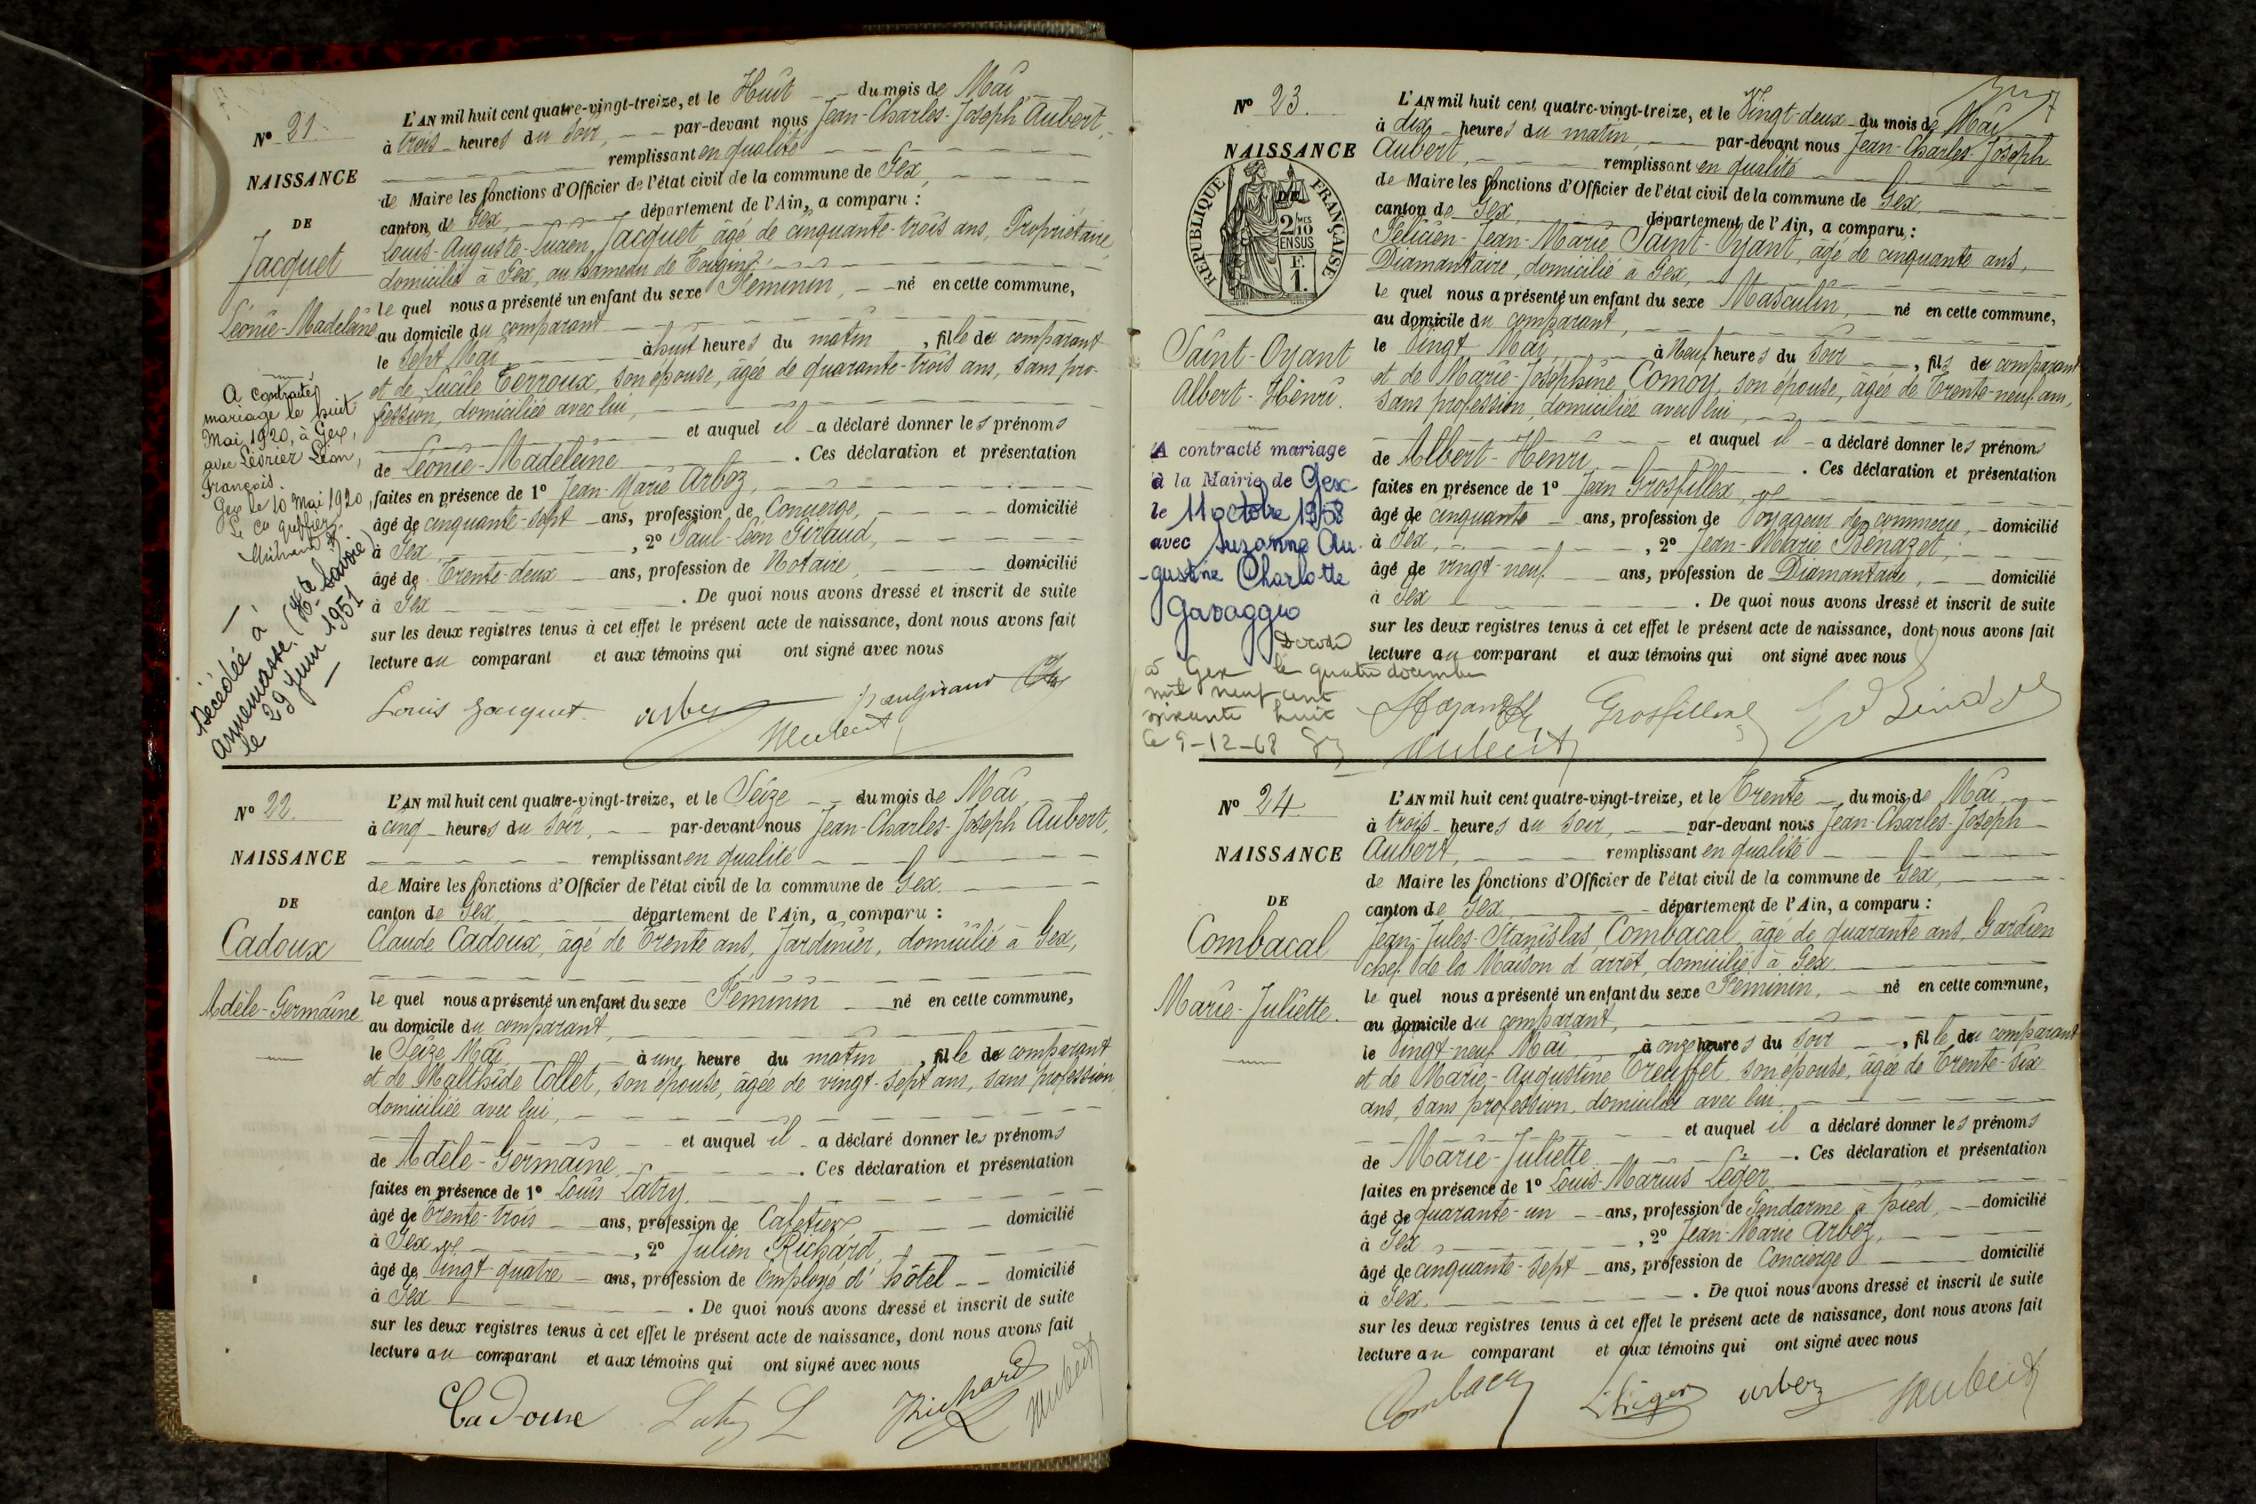 N° 21.
NAISSANCE
DE
Jacquet
Léonie-Madeleine
A contracté
mariage le huit
Mai 1920, à Gex,
avec Lévrier Léon,
François.
Gex le 10 Mai 1920,
Décédée à
Annemasse (Hte Savoie)
le 29 Juin 1951
L'AN mil huit cent quatre-vingt-treize, et le Huit du mois de Mai,
à trois heures du soir, par-devant nous Jean-Charles-Joseph Aubert,
remplissant en qualité
de Maire les fonctions d'Officier de l'état civil de la commune de Gex,
canton de Gex, département de l'Ain, a comparu :
Louis-Auguste-Lucien Jacquet âgé de cinquante-trois ans, Propriétaire,
domicilié à Gex, au hameau de Tougin,
le quel nous a présenté un enfant du sexe Féminin, né en cette commune,
au domicile du comparant
le sept Mai à huit heures du matin, fille du comparant
et de Lucile Terroux, son épouse, âgée de quarante-trois ans, sans pro-
fession, domiciliée avec lui,
et auquel il a déclaré donner les prénoms
de Léonie-Madeleine. Ces déclaration et présentation
faites en présence de 1° Jean-Marie Arbez,
âgé de cinquante-sept ans, profession de Concierge, domicilié
à Gex, 2° Paul-Léon Giraud,
âgé de Trente-deux ans, profession de Notaire, domicilié
à Gex. De quoi nous avons dressé et inscrit de suite
sur les deux registres tenus à cet effet le présent acte de naissance, dont nous avons fait
lecture au comparant et aux témoins qui ont signé avec nous
Louis Jacquet. Arbez Paul Giraud
JAubert
N° 22.
NAISSANCE
DE
Cadoux
Adèle-Germaine
L'AN mil huit cent quatre-vingt-treize, et le Seize du mois de Mai,
à cinq heures du soir, par-devant nous Jean-Charles-Joseph Aubert,
remplissant en qualité
de Maire les fonctions d'Officier de l'état civil de la commune de Gex.
canton de Gex, département de l'Ain, a comparu :
Claude Cadoux, âgé de Trente ans, Jardinier, domicilié à Gex,
le quel nous a présenté un enfant du sexe Féminin né en cette commune,
au domicile du comparant,
le Seize Mai à une heure du matin, fille du comparant
et de Mathilde Collet, son épouse, âgée de vingt-sept ans, sans profession
domiciliée avec lui,
et auquel il a déclaré donner les prénoms
de Adèle-Germaine. Ces déclaration et présentation
faites en présence de 1° Louis Latry.
âgé de Trente-trois ans, profession de Cafetier domicilié
à Gex, 2° Julien Richard,
âgé de Vingt-quatre ans, profession de Employé d'hôtel domicilié
à Gex. De quoi nous avons dressé et inscrit de suite
sur les deux registres tenus à cet effet le présent acte de naissance, dont nous avons fait
lecture au comparant et aux témoins qui ont signé avec nous
Cadoux Latry L JRichard JAubert
N° 23.
NAISSANCE
DE
RÉPUBLIQUE FRANÇAISE
2/10 MES
EN SUS
F.
1.
Saint-Oyant
Albert-Henri.
A contracté mariage
à la Mairie de Gex
le 11 octobre 1958
avec Suzanne Au-
gustine Charlotte
Gavaggio
Décédé
à Gex le quatre décembre
mil neuf cent
soixante huit
le 9-12-68
L'AN mil huit cent quatre-vingt-treize, et le Vingt-deux du mois de Mai
à dix heures du matin, par-devant nous Jean-Charles-Joseph
Aubert, remplissant en qualité
de Maire les fonctions d'Officier de l'état civil de la commune de Gex
canton de Gex, département de l'Ain, a comparu :
Félicien-Jean-Marie Saint-Oyant, âgé de cinquante ans,
Diamantaire, domicilié à Gex,
le quel nous a présenté un enfant du sexe Masculin, né en cette commune,
au domicile du comparant,
le Vingt Mai, à Neuf heures du soir, fils du comparant
et de Marie-Joséphine Comoy, son épouse, âgée de Trente-neuf ans,
sans profession, domiciliée avec lui,
et auquel il a déclaré donner les prénoms
de Albert-Henri. Ces déclaration et présentation
faites en présence de 1° Jean Grosfillex,
âgé de cinquante ans, profession de Voyageur de commerce, domicilié
à Gex, 2° Jean-Marie Bénazet,
âgé de vingt-neuf ans, profession de Diamantaire, domicilié
à Gex. De quoi nous avons dressé et inscrit de suite
sur les deux registres tenus à cet effet le présent acte de naissance, dont nous avons fait
lecture au comparant et aux témoins qui ont signé avec nous
Grosfillex
JAubert
N° 24.
NAISSANCE
DE
Combacal
Marie-Juliette.
L'AN mil huit cent quatre-vingt-treize, et le Trente du mois de Mai,
à trois heures du soir, par-devant nous Jean-Charles-Joseph
Aubert, remplissant en qualité
de Maire les fonctions d'Officier de l'état civil de la commune de Gex,
canton de Gex département de l'Ain, a comparu :
Jean-Jules-Stanislas Combacal âgé de quarante ans, Gardien
chef de la Maison d'arrêt, domicilié à Gex.
le quel nous a présenté un enfant du sexe Féminin, né en cette commune,
au domicile du comparant,
le Vingt-neuf Mai à onze heures du soir, fille du comparant
et de Marie-Augustine Treuffet, son épouse, âgée de Trente-six
ans, sans profession, domiciliée avec lui,
et auquel il a déclaré donner les prénoms
de Marie-Juliette. Ces déclaration et présentation
faites en présence de 1° Louis-Marius Léger
âgé de quarante-un ans, profession de Gendarme à pied, domicilié
à Gex, 2° Jean-Marie Arbez,
âgé de cinquante-sept ans, profession de Concierge domicilié
à Gex. De quoi nous avons dressé et inscrit de suite
sur les deux registres tenus à cet effet le présent acte de naissance, dont nous avons fait
lecture au comparant et aux témoins qui ont signé avec nous
Combacal Léger Arbez JAubert